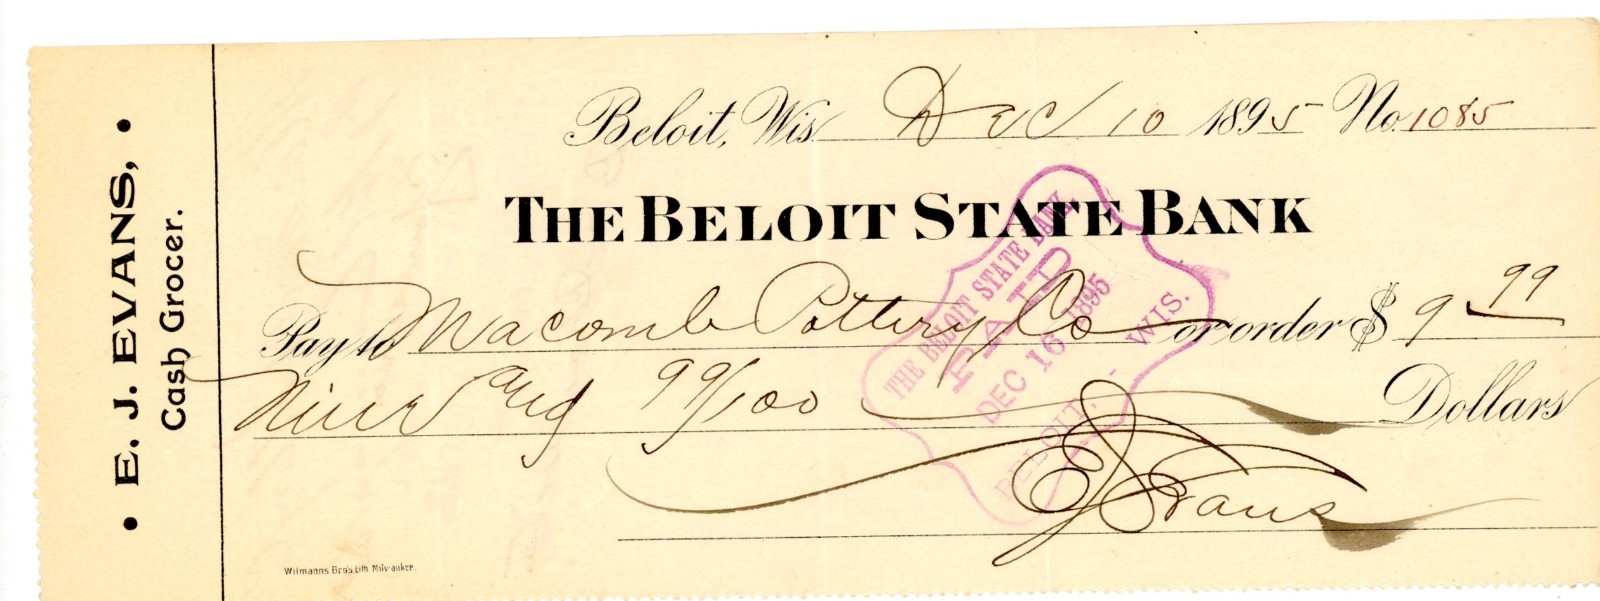 • E. J. EVANS, •
Cash Grocer.
Beloit, Wis. Dec 10 1895 No. 1085
THE BELOIT STATE BANK
Pay to Macomb Pottery Co or order $ 9 99
Nine and 99/100 Dollars
E J Evans
THE BELOIT STATE BANK
PAID
DEC 16 1895
BELOIT, WIS.
Wilmanns Bros. Lith. Milwaukee.